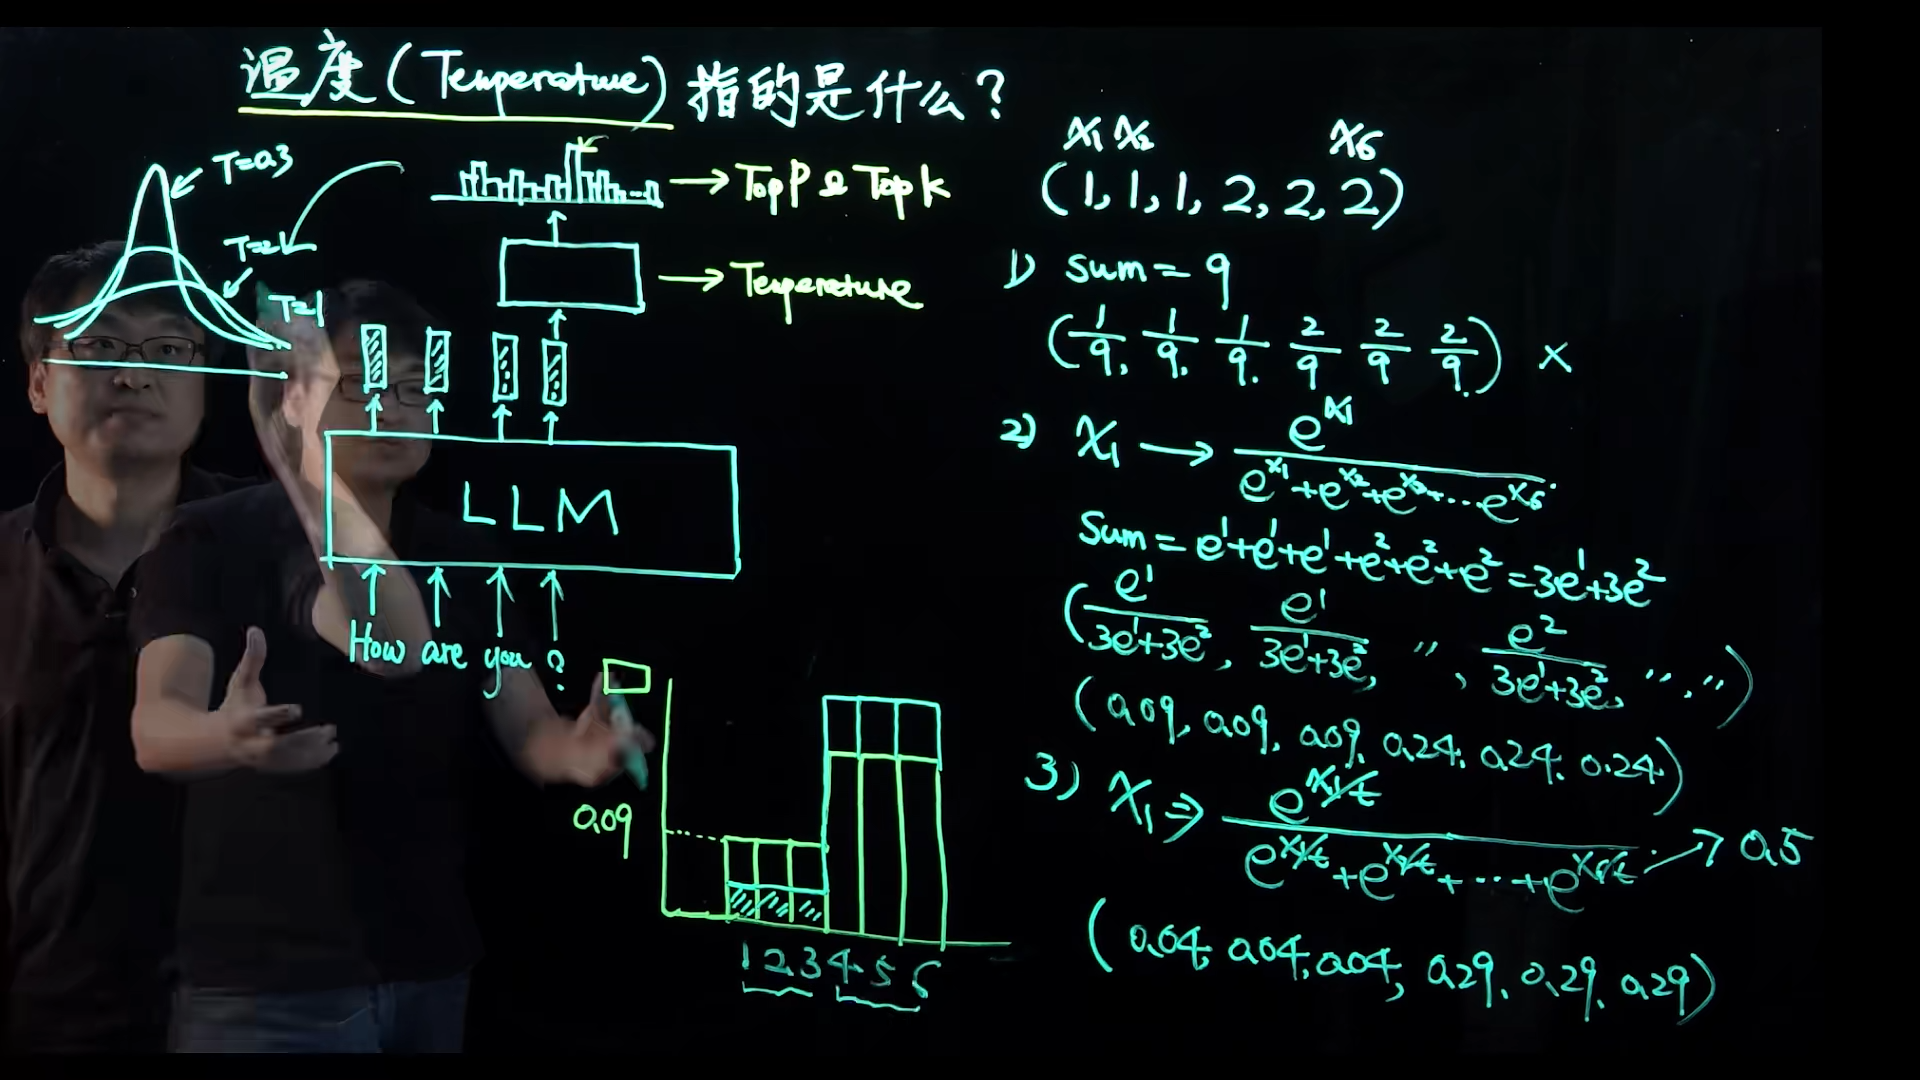 温度(Temperature)指的是什么?
T=0.3
T=2
T=1
→ Top P & Top k
→ Temperature
LLM
How are you ?
0.09
1 2 3 4 5 6
x₁ x₂ x₆
(1, 1, 1, 2, 2, 2)
1) sum = 9
(1/9, 1/9, 1/9, 2/9, 2/9, 2/9) ×
2) x₁ → e^x₁ / (e^x₁+e^x₂+e^x₃+...e^x₆)
Sum = e¹+e¹+e¹+e²+e²+e² = 3e¹+3e²
(e¹/(3e¹+3e²), e¹/(3e¹+3e²), ", e²/(3e¹+3e²), ", ")
(0.09, 0.09, 0.09, 0.24, 0.24, 0.24)
3) x₁ ⇒ e^(x₁/t) / (e^(x₁/t)+e^(x₂/t)+...+e^(x₆/t)) → 0.5
(0.04, 0.04, 0.04, 0.29, 0.29, 0.29)